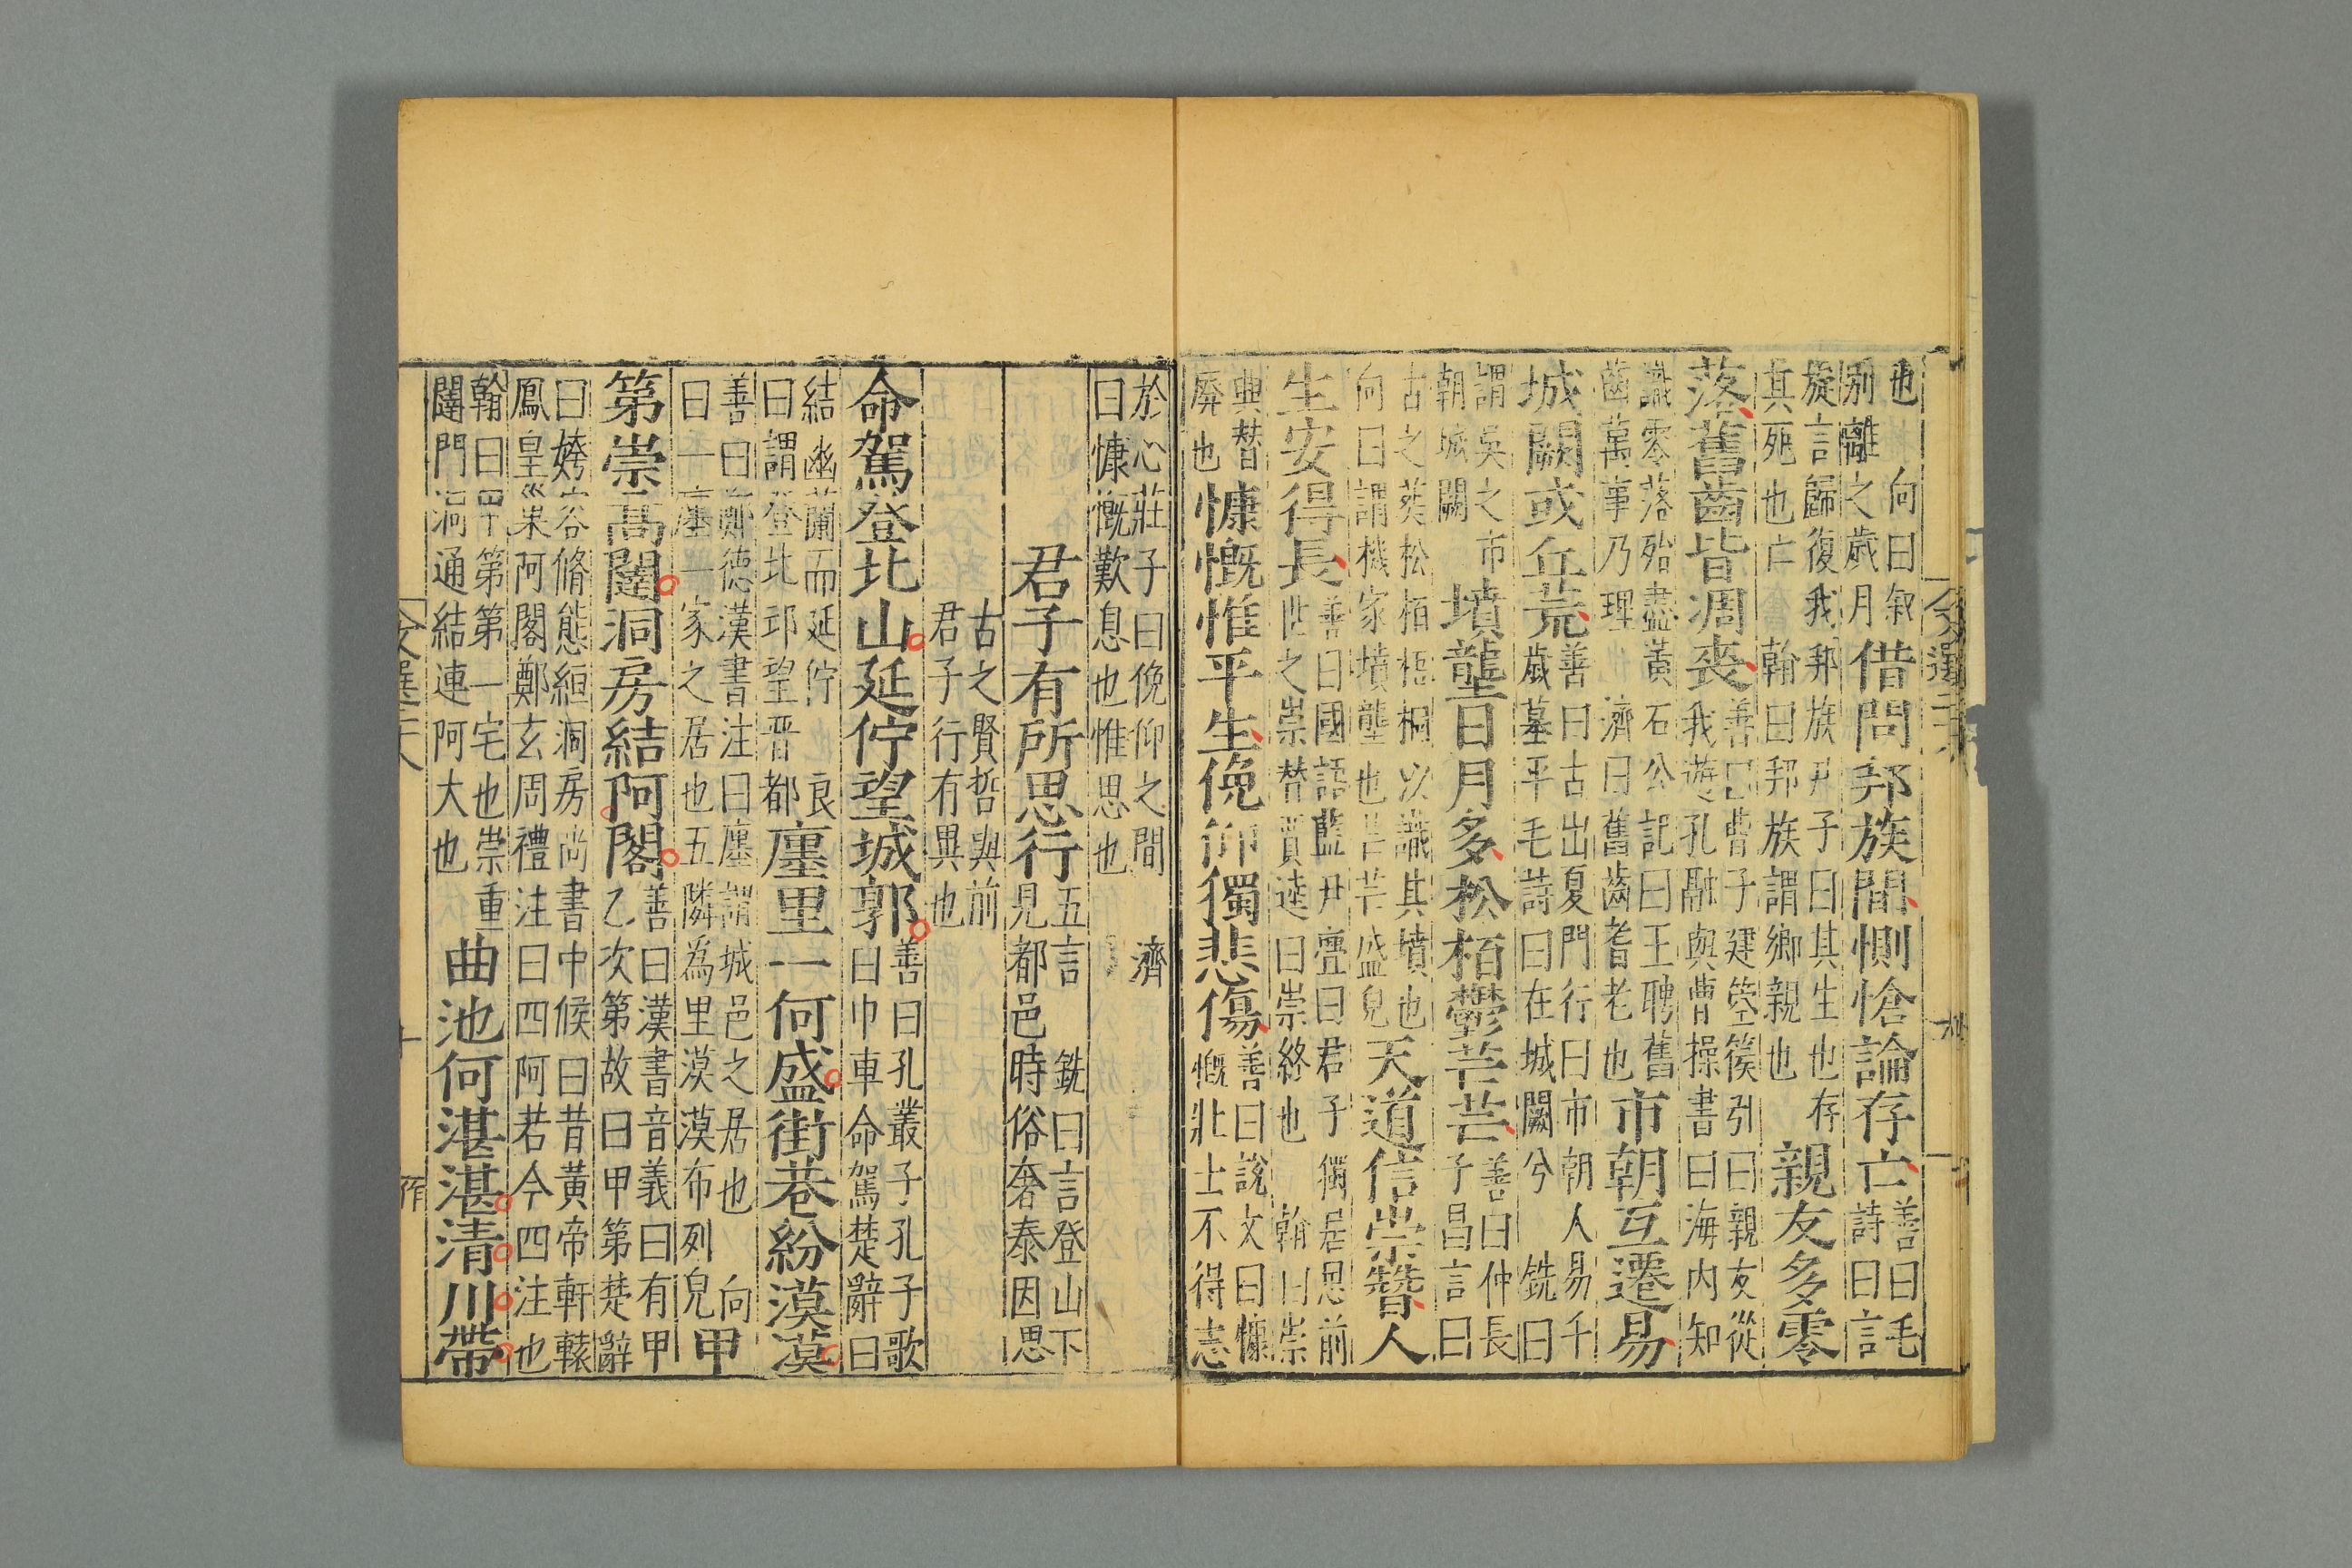 也 向曰叙
別離之歲月
借問邦族間惻愴論存亡
善曰毛
詩曰言
旋言歸復我邦族尹子曰其生也存
其死也亡 翰曰邦族謂鄉親也
親友多零
落舊齒皆凋喪
善曰曹子建箜篌引曰親友從
我遊孔融與曹操書曰海内知
識零落殆盡黃石公記曰王聘舊
齒萬事乃理 濟曰舊齒耆老也
市朝互遷易
城闕或丘荒
善曰古出夏門行曰市朝人易千
歲墓平毛詩曰在城闕兮 銑曰
謂吳之市
朝城闕
墳壟日月多松栢鬱芒芒
善曰仲長
子昌言曰
古之葬松栢梧桐以識其墳也
向曰謂機家墳壟也芒芒盛皃
天道信崇替人
生安得長
善曰國語藍尹亹曰君子獨居思前
世之崇替賈逵曰崇終也 翰曰崇
典替
廢也
慷慨惟平生俛仰獨悲傷
善曰說文曰慷
慨壯士不得志
於心莊子曰俛仰之間 濟
曰慷慨歎息也惟思也
君子有所思行
五言 銑曰言登山下
見都邑時俗奢泰因思
古之賢哲與前
君子行有異也
命駕登北山延佇望城郭
善曰孔叢子孔子歌
曰巾車命駕楚辭曰
結幽蘭而延佇 良
曰謂登北邙望晉都
廛里一何盛街巷紛漠漠
善曰鄭德漢書注曰廛謂城邑之居也 向
曰一廛一家之居也五隣為里漠漠布列皃
甲
第崇高闥洞房結阿閣
善曰漢書音義曰有甲
乙次第故曰甲第楚辭
曰姱容脩態絙洞房尚書中候曰昔黃帝軒轅
鳳皇巢阿閣鄭玄周禮注曰四阿若今四注也
翰曰甲第第一宅也崇重
闥門洞通結連阿大也
曲池何湛湛清川帶